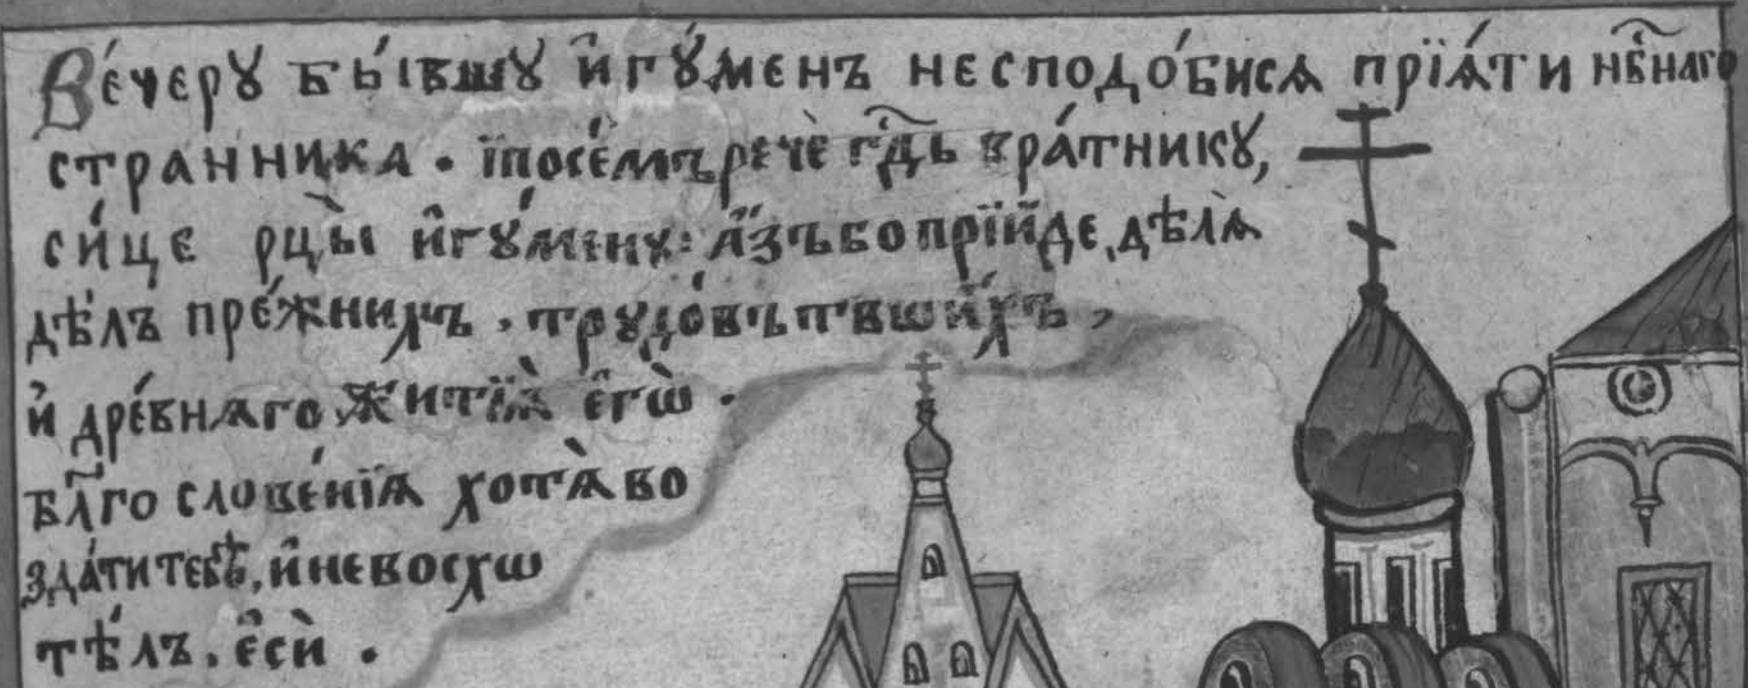 Ве́черꙋ бы́вшꙋ и҆гꙋ́менъ несподо́бисѧ прїѧ́ти нб҃наго
странника. їпосе́мъ речѐ гд҃ь вра́тникꙋ,
си́це рцы̀ и҆гꙋ́менꙋ: а҆́зъ бо прїи́де, дѣ́лѧ
дѣ́лъ пре́жнихъ, трꙋдо́въ твши́хъ,
и҆ дре́внѧго житїѧ̀ є҆гѡ̀.
бл҃гословенїѧ хотѧ̀ во
зда́ти тебѣ̀, и҆ невосхѡ
тѣ́лъ, є҆сѝ.